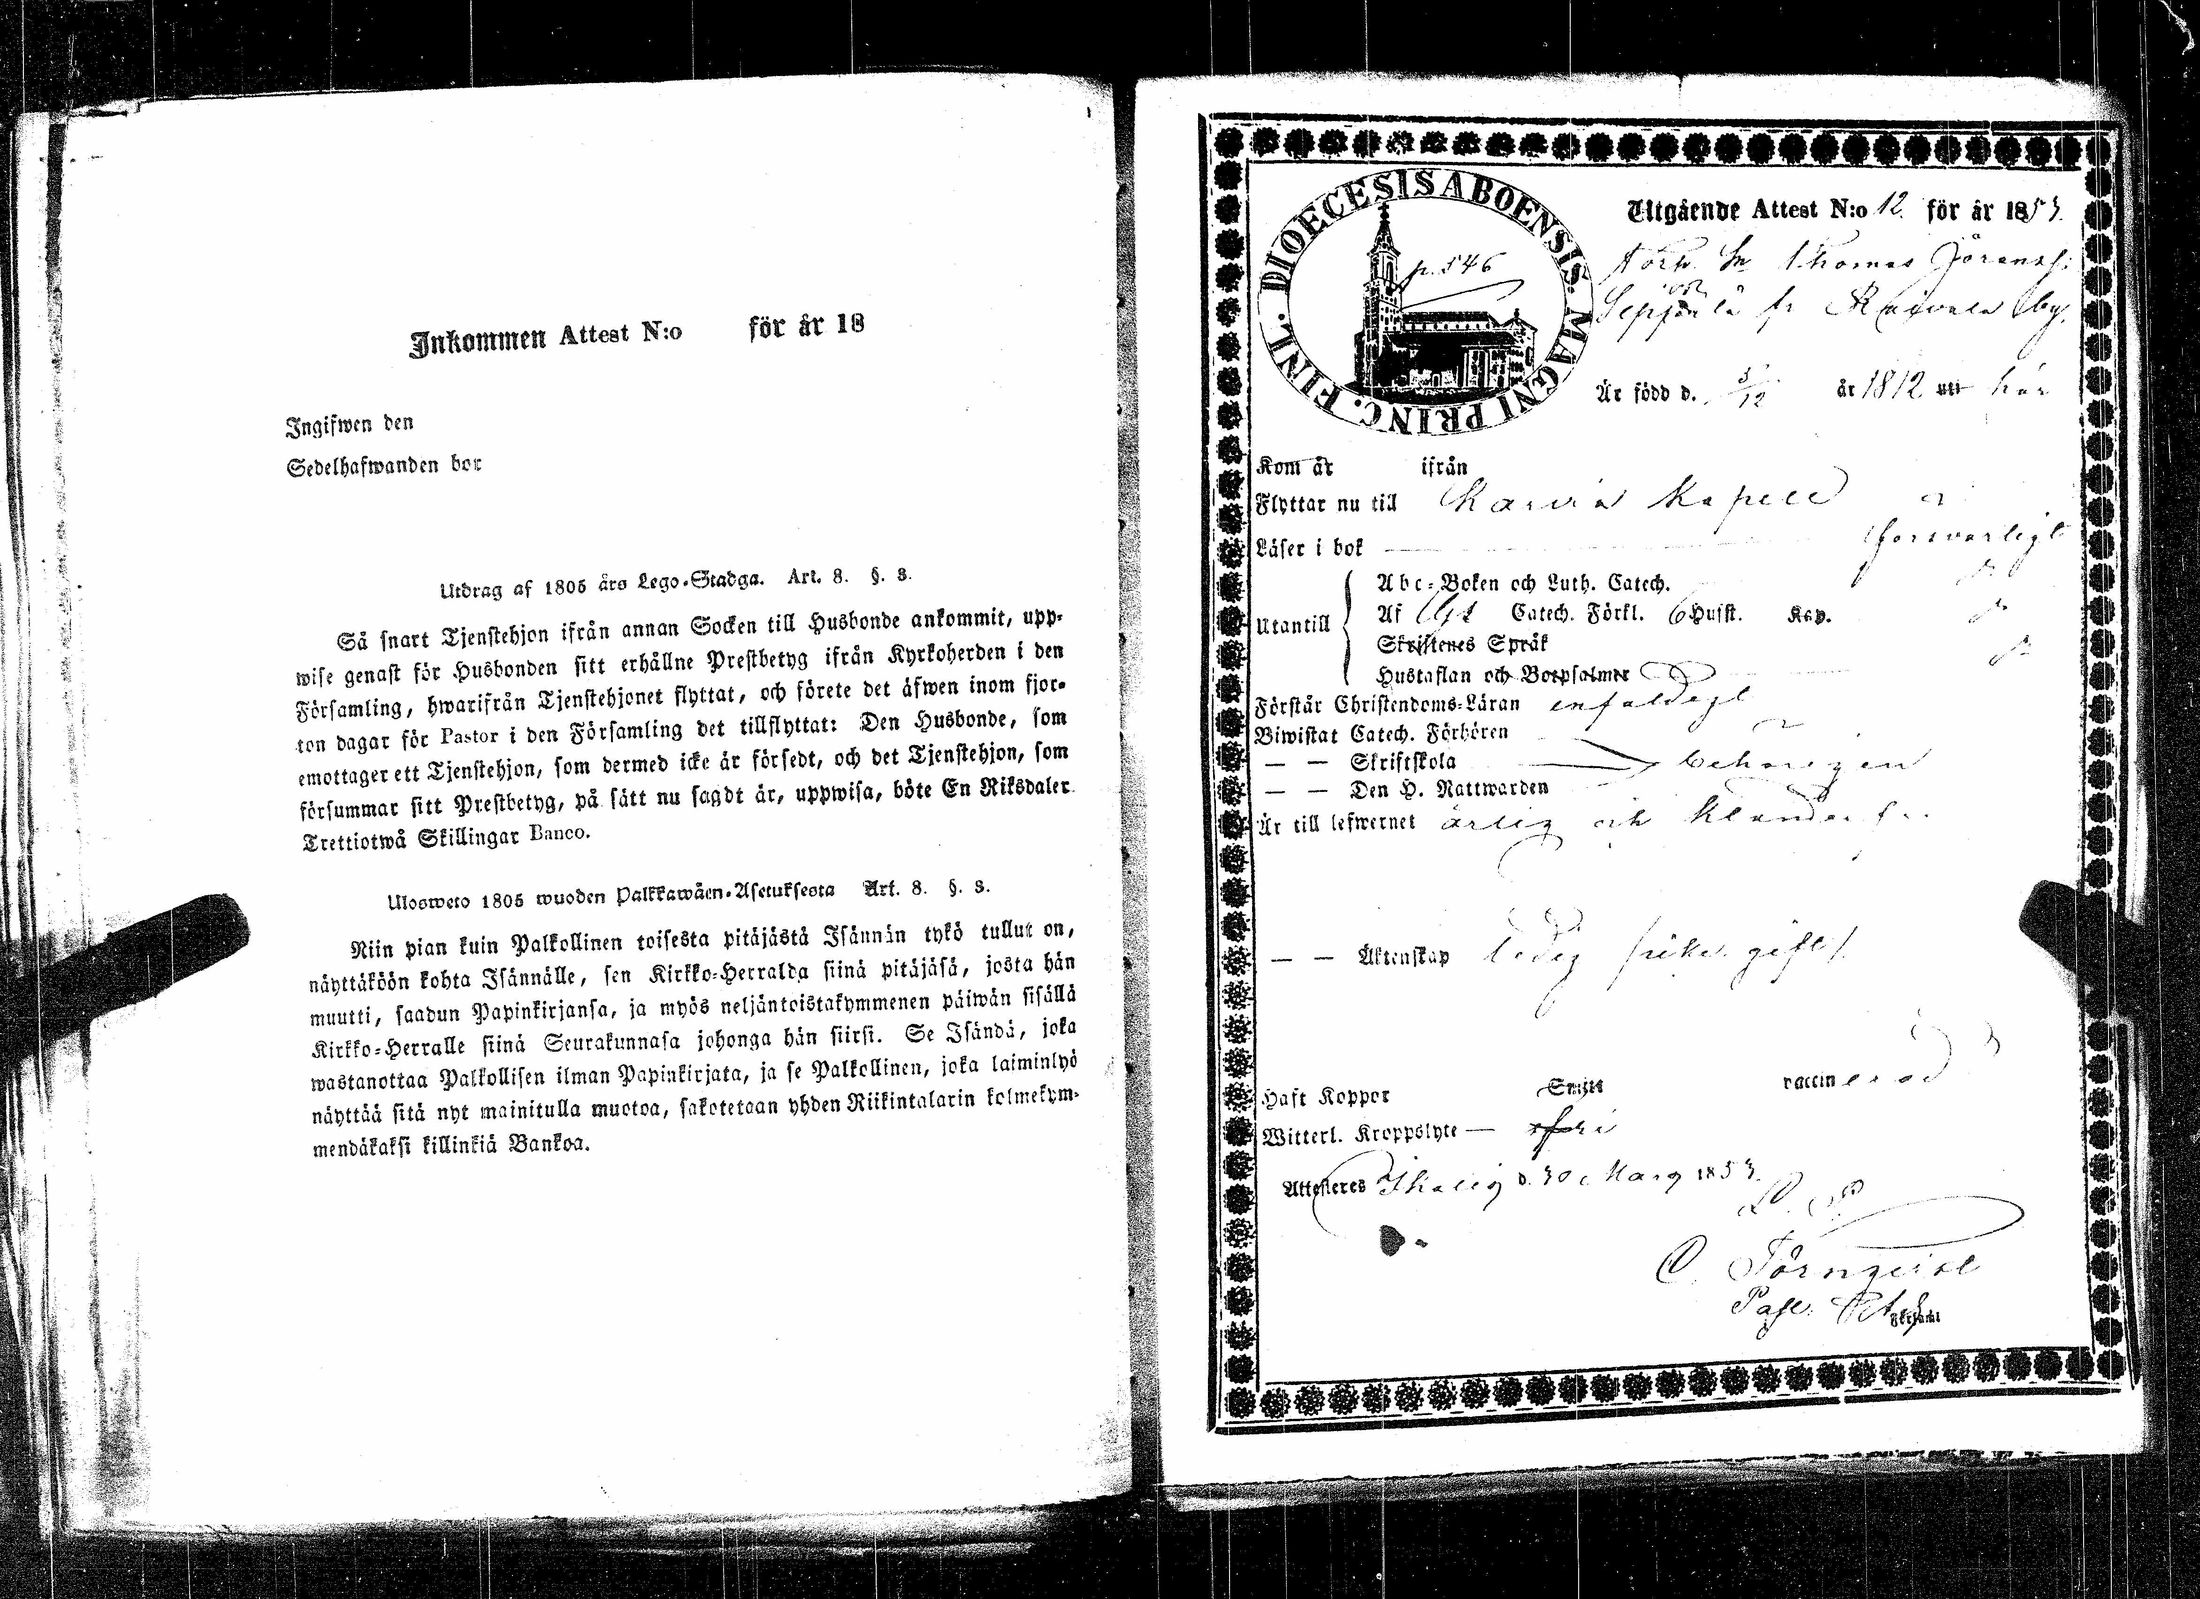 Inkommen Attest N:o för år 18
Ingifwen den
Sedelhafwanden bor
Utdrag af 1805 års Lego-Stadga. Art. 8. §. 3.
Så snart Tjenstehjon ifrån annan Socken till Husbonde ankommit, upp-
wise genast för Husbonden sitt erhållne Prestbetyg ifrån Kyrkoherden i den
Församling, hwarifrån Tjenstehjonet flyttat, och förete det äfwen inom fjor-
ton dagar för Pastor i den Församling det tillflyttat: Den Husbonde, som
emottager ett Tjenstehjon, som dermed icke är försedt, och det Tjenstehjon, som
försummar sitt Prestbetyg, på sätt nu sagdt är, uppwisa, böte En Riksdaler
Trettiotwå Skillingar Banco.
Ulosweto 1805 wuoden Palkkawäen-Asetuksesta Art. 8. §. 3.
Niin pian kuin Palkollinen toisesta pitäjästä Isännän tykö tullut on,
näyttäköön kohta Isännälle, sen Kirkko-Herralda siinä pitäjäsä, josta hän
muutti, saadun Papinkirjansa, ja myös neljäntoistakymmenen päiwän sisällä
Kirkko-Herralle siinä Seurakunnasa johonga hän siirsi. Se Isändä, joka
wastanottaa Palkollisen ilman Papinkirjata, ja se Palkollinen, joka laiminlyö
näyttää sitä nyt mainitulla muotoa, sakotetaan yhden Riikintalarin kolmekym-
mendäkaksi killinkiä Bankoa.
DIOECESIS ABOENSIS. MAGNI PRINC. FINL.
p. 546
Utgående Attest N:o 12 för år 1853.
Torp. Sn Thomas Jöranss:
by.
Är född d. 5/12 år 1812 uti här
Kom år ifrån
Flyttar nu till Karvia Kapell
Läser i bok forsvarligt
Utantill
Abc-Boken och Luth. Catech.
Af Catech. Förkl. 6 Husst. Kap.
Skriftenes Språk
Hustaflan och Botpsalmer
Förstår Christendoms-Läran enfaldigt
Biwistat Catech. Förhören
— — Skriftskola behörigen
— — Den H. Nattwarden
Är till lefwernet ärlig och
— — Äktenskap ledig
Haft Koppor Smitt vaccinerad
Witterl. Kroppslyte — fri
Attesteres Ikalis d. 30 Mars 1853.
C. Törnqvist
Past.